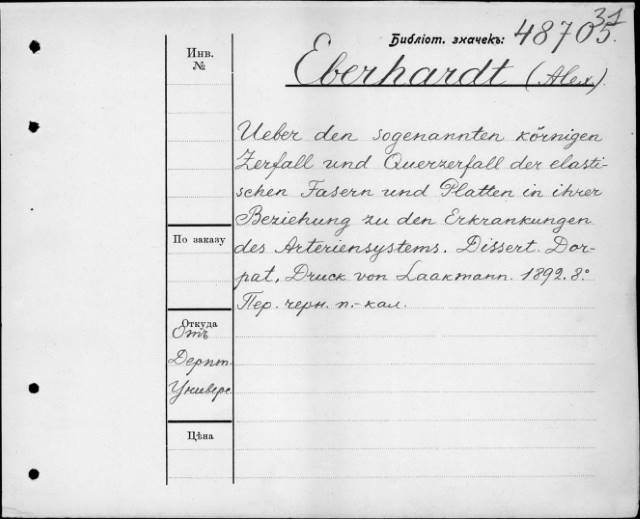 31
Библіот. значекъ: 48705.
Инв.
№
Eberhardt (Alex).
Ueber den sogenannten körnigen
Zerfall und Querzerfall der elasti-
schen Fasern und Platten in ihrer
Beziehung zu den Erkrankungen
По заказу
des Arteriensystems. Dissert. Dor-
pat, Druck von Laakmann. 1892. 8°
Пер. черн. п.-кал.
Откуда
Отъ
Дерпт.
Универс.
Цѣна